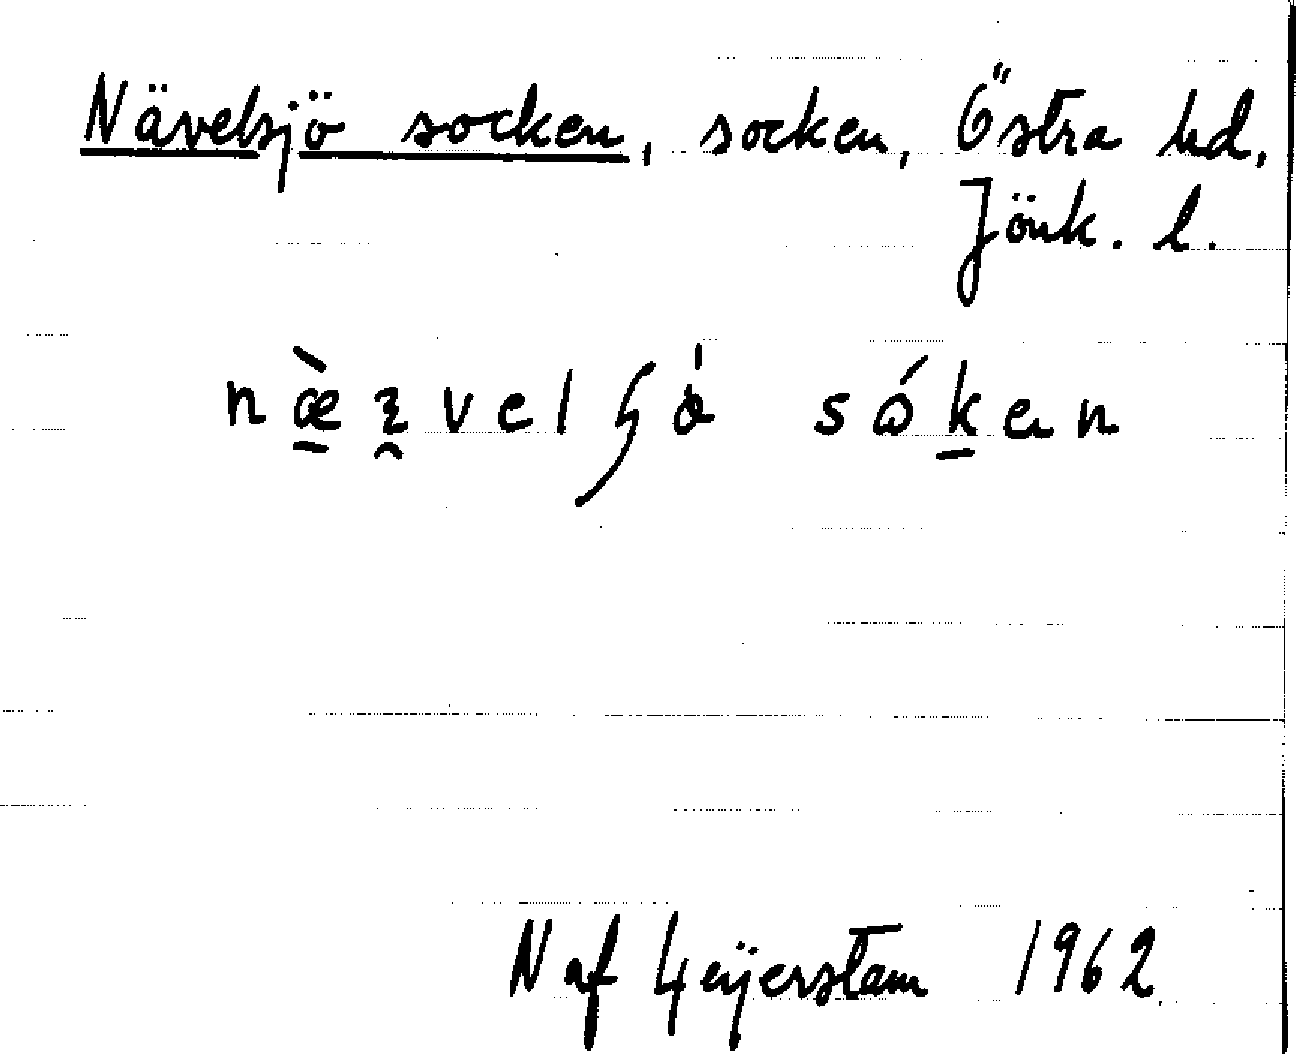 Nävelsjö socken, socken, Östra hd,
Jönk. l.
næ̀ꝛvelɧó sóken
N af Geijerstam 1962